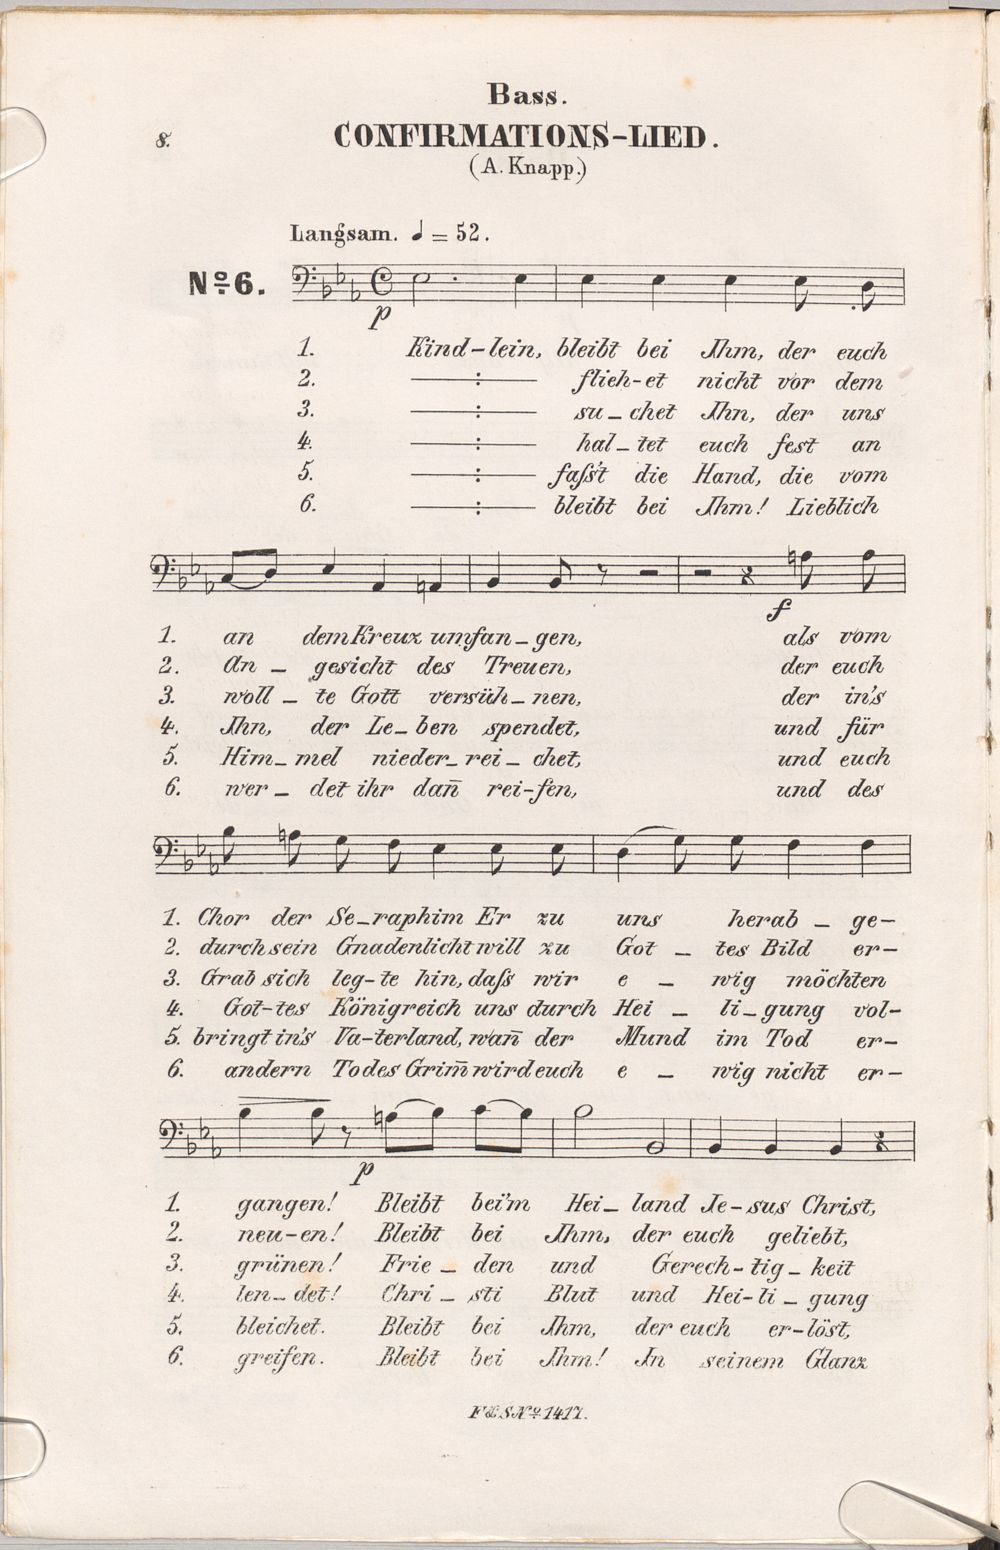 Bass.
8.
CONFIRMATIONS-LIED.
(A. Knapp.)
Langsam. ♩ = 52.
No. 6.
p
1. Kind-lein, bleibt bei Ihm, der euch
2. flieh-et nicht vor dem
3. su-chet Ihn, der uns
4. hal-tet euch fest an
5. faſs't die Hand, die vom
6. bleibt bei Ihm! Lieblich
f
1. an dem Kreuz umfan-gen, als vom
2. An-gesicht des Treuen, der euch
3. woll-te Gott versüh-nen, der in's
4. Ihn, der Le-ben spendet, und für
5. Him-mel nieder-rei-chet, und euch
6. wer-det ihr dan̄ rei-fen, und des
1. Chor der Se-raphim Er zu uns herab-ge-
2. durch sein Gnadenlicht will zu Got-tes Bild er-
3. Grab sich leg-te hin, daſs wir e-wig möchten
4. Got-tes Königreich uns durch Hei-li-gung vol-
5. bringt in's Va-terland, wan̄ der Mund im Tod er-
6. andern Todes Grim̄ wird euch e-wig nicht er-
p
1. gangen! Bleibt bei'm Hei-land Je-sus Christ,
2. neu-en! Bleibt bei Ihm, der euch geliebt,
3. grünen! Frie-den und Gerech-tig-keit
4. len-det! Chri-sti Blut und Hei-li-gung
5. bleichet. Bleibt bei Ihm, der euch er-löst,
6. greifen. Bleibt bei Ihm! In seinem Glanz
F & S No. 1417.